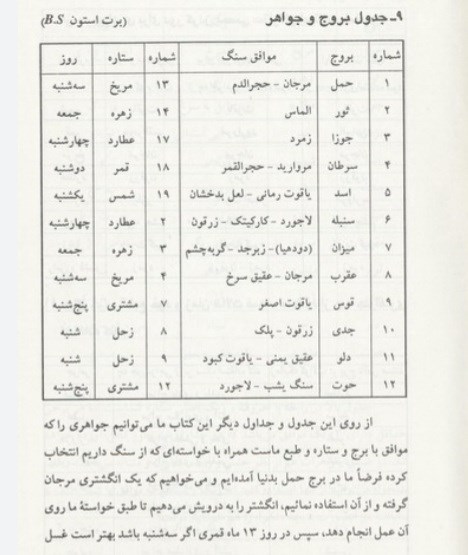 ۹ـ جدول بروج و جواهر (برت استون B.S)
شماره بروج موافق سنگ شماره ستاره روز
۱ حمل مرجان - حجرالدم ۱۳ مریخ سه‌شنبه
۲ ثور الماس ۱۴ زهره جمعه
۳ جوزا زمرد ۱۷ عطارد چهارشنبه
۴ سرطان مروارید - حجرالقمر ۱۸ قمر دوشنبه
۵ اسد یاقوت رمانی - لعل بدخشان ۱۹ شمس یکشنبه
۶ سنبله لاجورد - کارکیتک - زرقون ۲ عطارد چهارشنبه
۷ میزان (دودهیا) - زبرجد - گربه‌چشم ۳ زهره جمعه
۸ عقرب مرجان - عقیق سرخ ۴ مریخ سه‌شنبه
۹ قوس یاقوت اصفر ۷ مشتری پنج‌شنبه
۱۰ جدی زرقون - پلک ۸ زحل شنبه
۱۱ دلو عقیق یمنی - یاقوت کبود ۹ زحل شنبه
۱۲ حوت سنگ یشب - لاجورد ۱۲ مشتری پنج‌شنبه
از روی این جدول و جداول دیگر این کتاب ما می‌توانیم جواهری را که
موافق با برج و ستاره و طبع ماست همراه با خواسته‌ای که از سنگ داریم انتخاب
کرده فرضاً ما در برج حمل بدنیا آمده‌ایم و می‌خواهیم که یک انگشتری مرجان
گرفته و از آن استفاده نمائیم، انگشتر را به درویش می‌دهیم تا طبق خواستۀ ما روی
آن عمل انجام دهد، سپس در روز ۱۳ ماه قمری اگر سه‌شنبه باشد بهتر است غسل